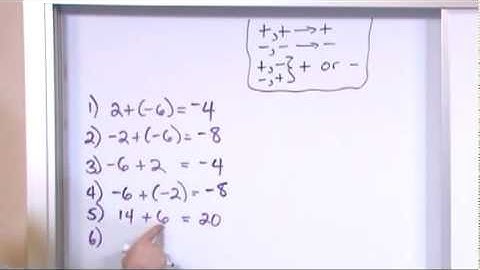 +,+ → +
-,- → -
+,- } + or -
-,+
1) 2+(-6)=-4
2) -2+(-6)=-8
3) -6+2 =-4
4) -6+(-2)=-8
5) 14+6 = 20
6)